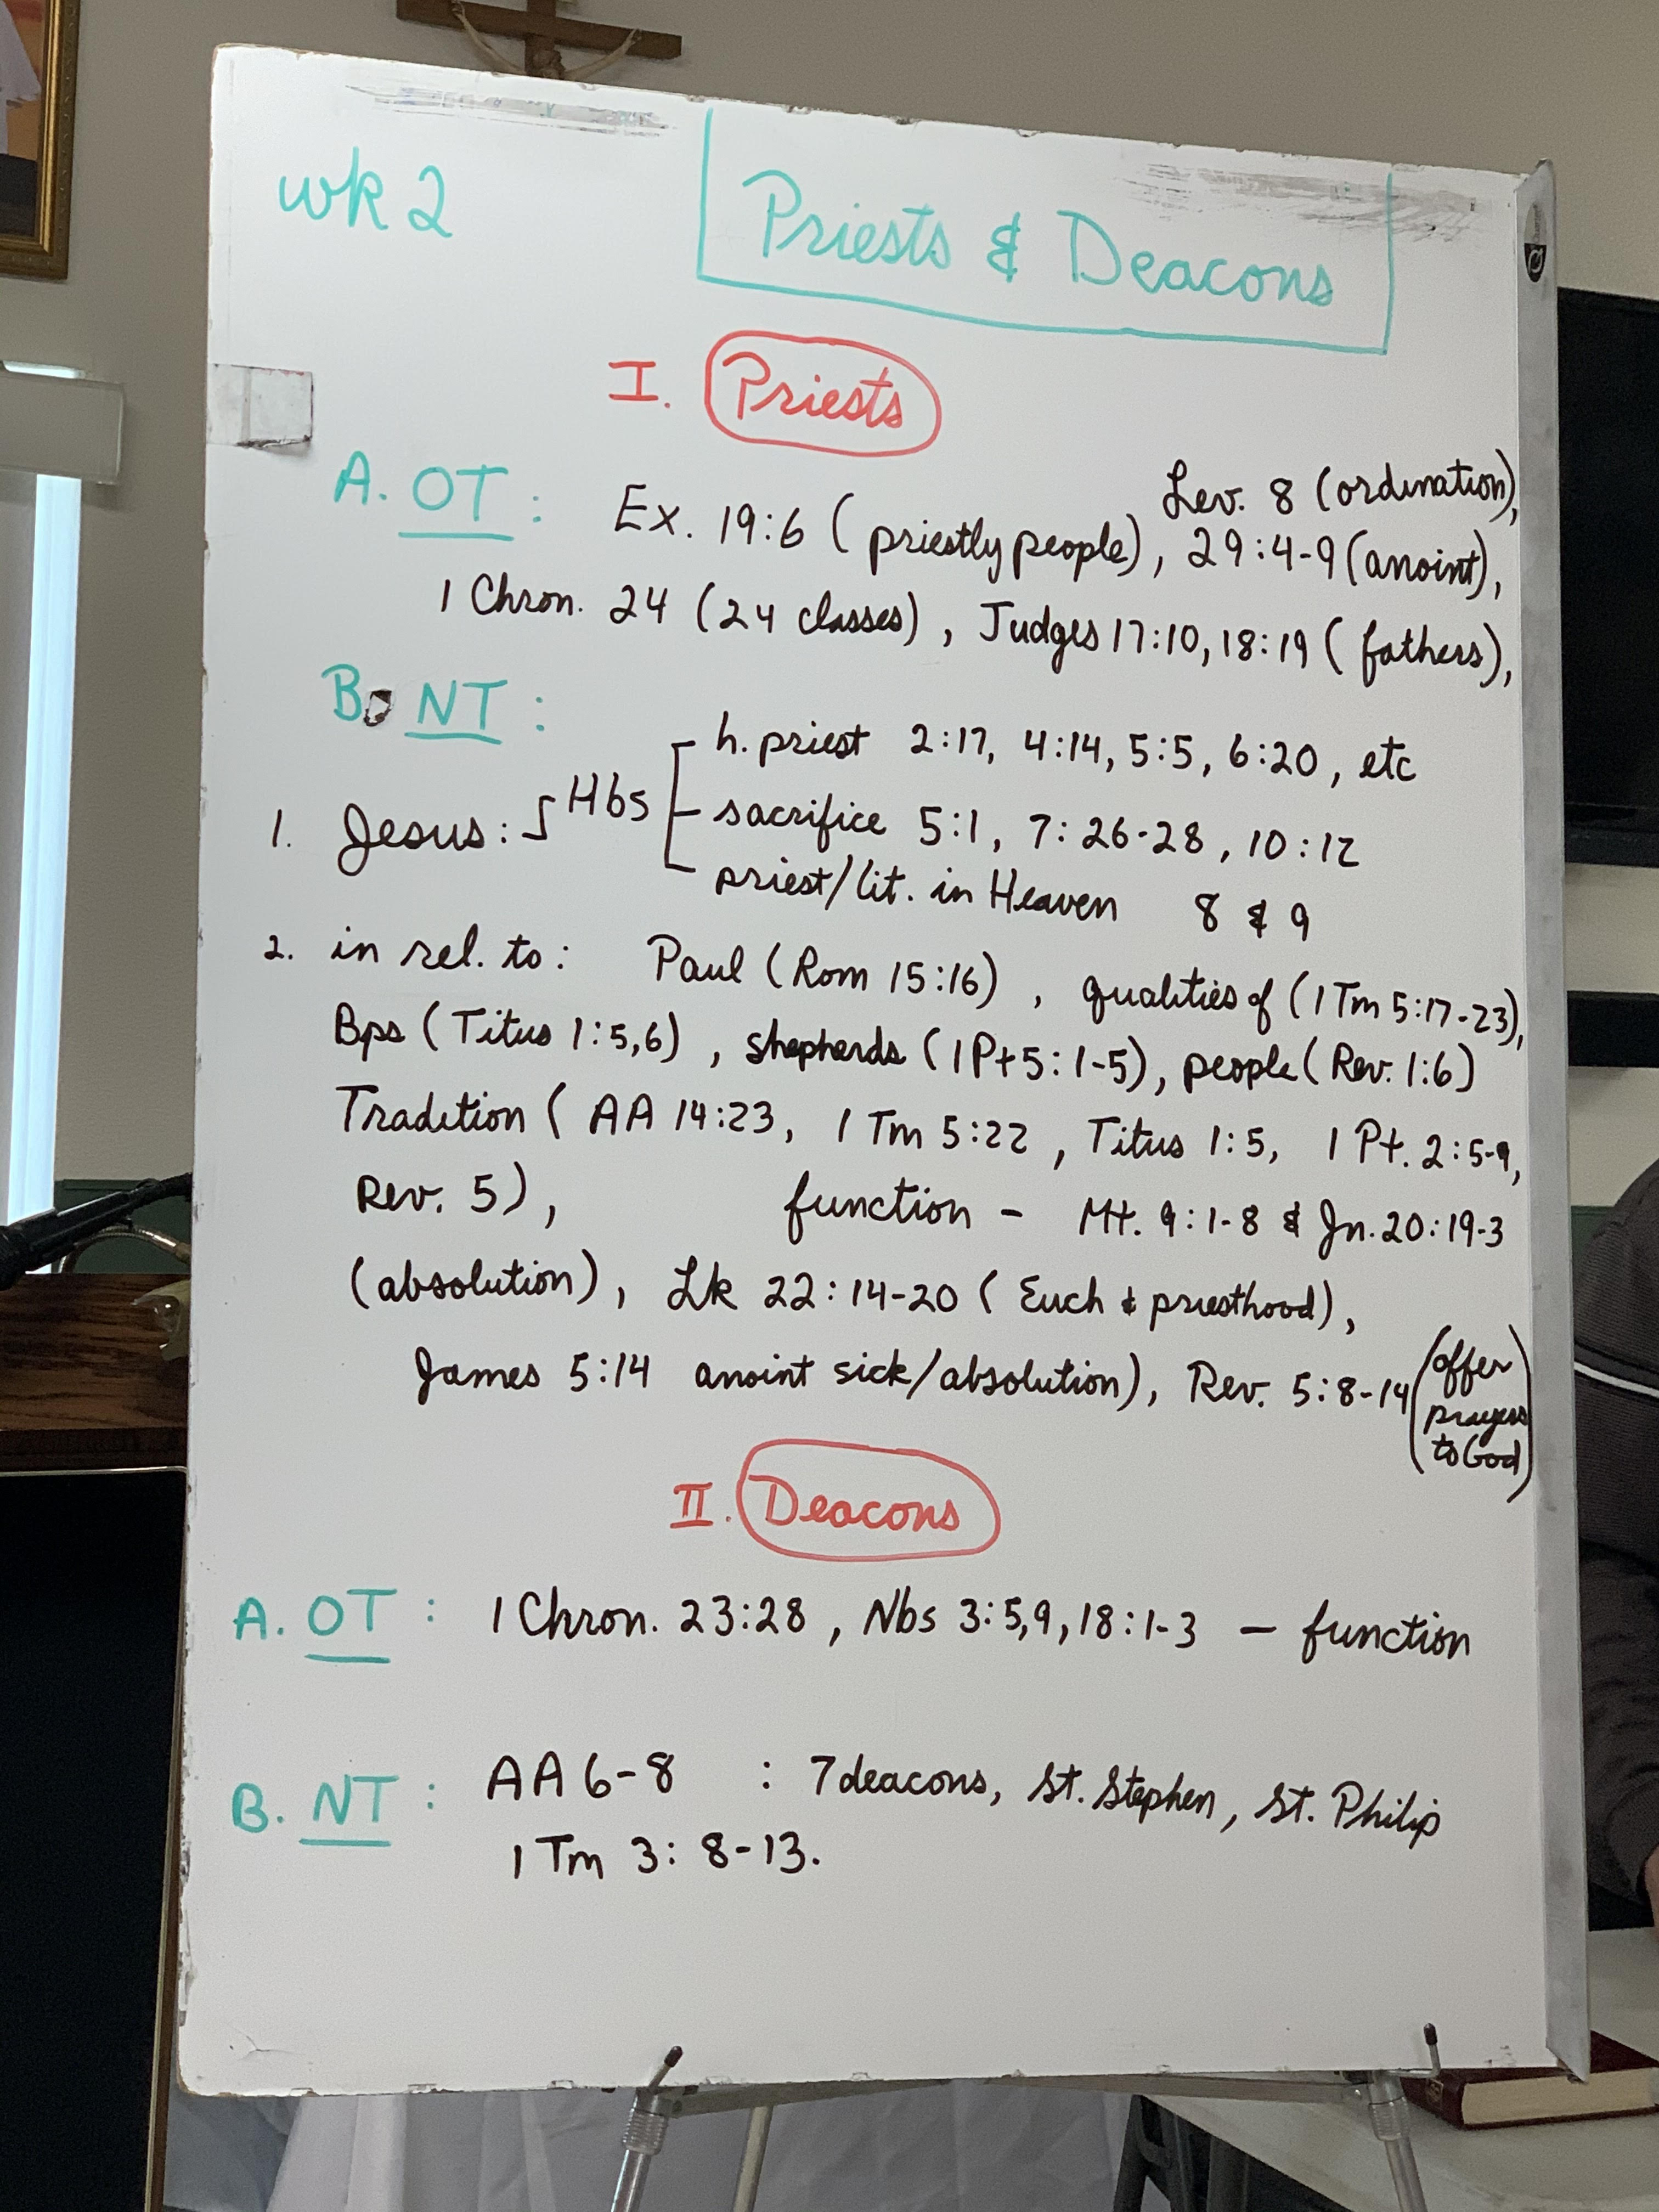 wk 2
Priests & Deacons
I. Priests
Lev. 8 (ordination),
A. OT: Ex. 19:6 (priestly people), 29:4-9 (anoint),
1 Chron. 24 (24 classes), Judges 17:10, 18:19 (fathers),
B. NT:
h. priest 2:17, 4:14, 5:5, 6:20, etc
1. Jesus: Hbs sacrifice 5:1, 7:26-28, 10:12
priest/lit. in Heaven 8 & 9
2. in rel. to: Paul (Rom 15:16), qualities of (1 Tm 5:17-23),
Bps (Titus 1:5,6), shepherds (1 Pt 5:1-5), people (Rev. 1:6)
Tradition (AA 14:23, 1 Tm 5:22, Titus 1:5, 1 Pt. 2:5-9,
Rev. 5), function - Mt. 9:1-8 & Jn. 20:19-3
(absolution), Lk 22:14-20 (Euch & priesthood),
James 5:14 anoint sick/absolution), Rev. 5:8-14 (offer
prayers
to God)
II. Deacons
A. OT: 1 Chron. 23:28, Nbs 3:5,9,18:1-3 - function
B. NT: AA 6-8 : 7 deacons, St. Stephen, St. Philip
1 Tm 3:8-13.